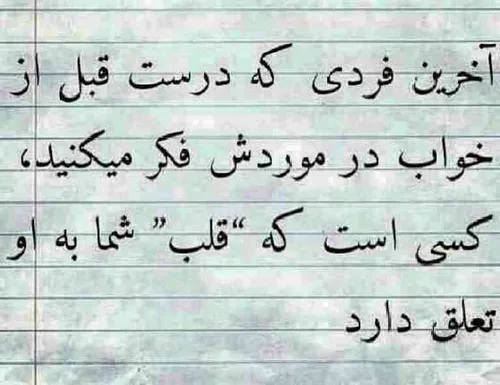 آخرین فردی که درست قبل از
خواب در موردش فکر میکنید،
کسی است که “قلب” شما به او
تعلق دارد